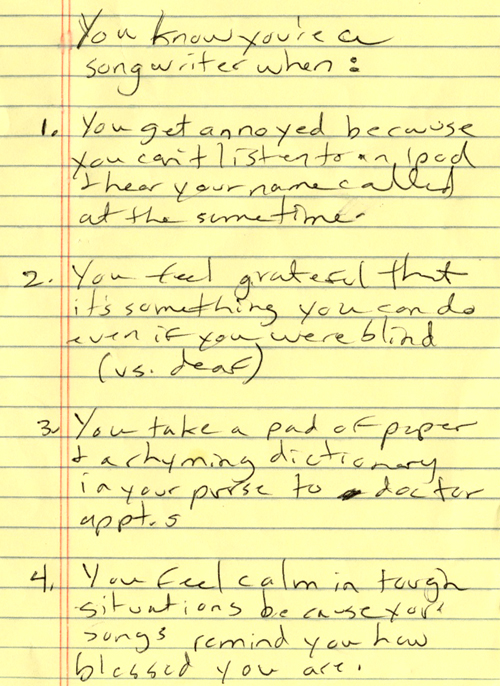 You know you're a
songwriter when:
1. You get annoyed because
you can't listen to an ipod
& hear your name called
at the same time.
2. You feel grateful that
it's something you can do
even if you were blind
(vs. deaf)
3. You take a pad of paper
& a rhyming dictionary
in your purse to doctor
appt.s
4. You feel calm in tough
situations because your
songs remind you how
blessed you are.